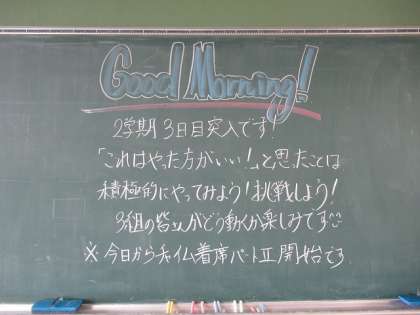 Good Morning!
2学期 3日目突入です!
「これはやった方がいい!」と思ったことは
積極的にやってみよう!挑戦しよう!
3組の皆さんがどう動くか楽しみです
※今日からチャイム着席パートⅡ開始です